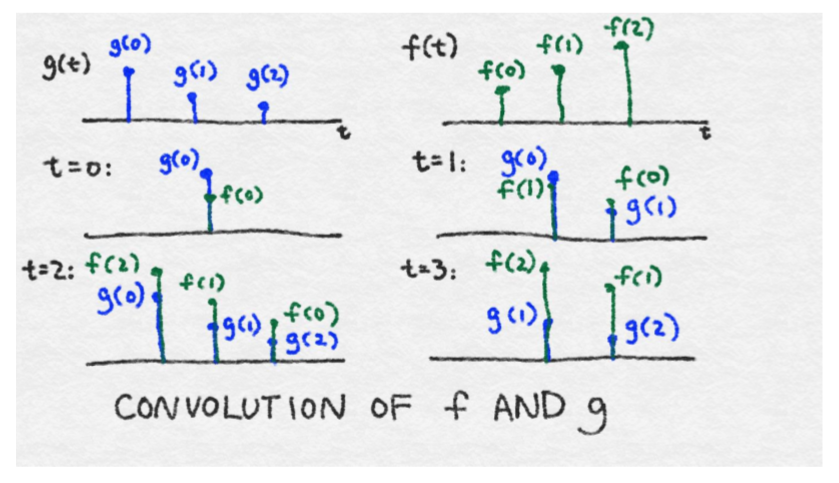 g(t) g(0) g(1) g(2) t
f(t) f(0) f(1) f(2) t
t=0: g(0) f(0)
t=1: g(0) f(1) f(0) g(1)
t=2: f(2) g(0) f(1) g(1) f(0) g(2)
t=3: f(2) g(1) f(1) g(2)
CONVOLUTION OF f AND g